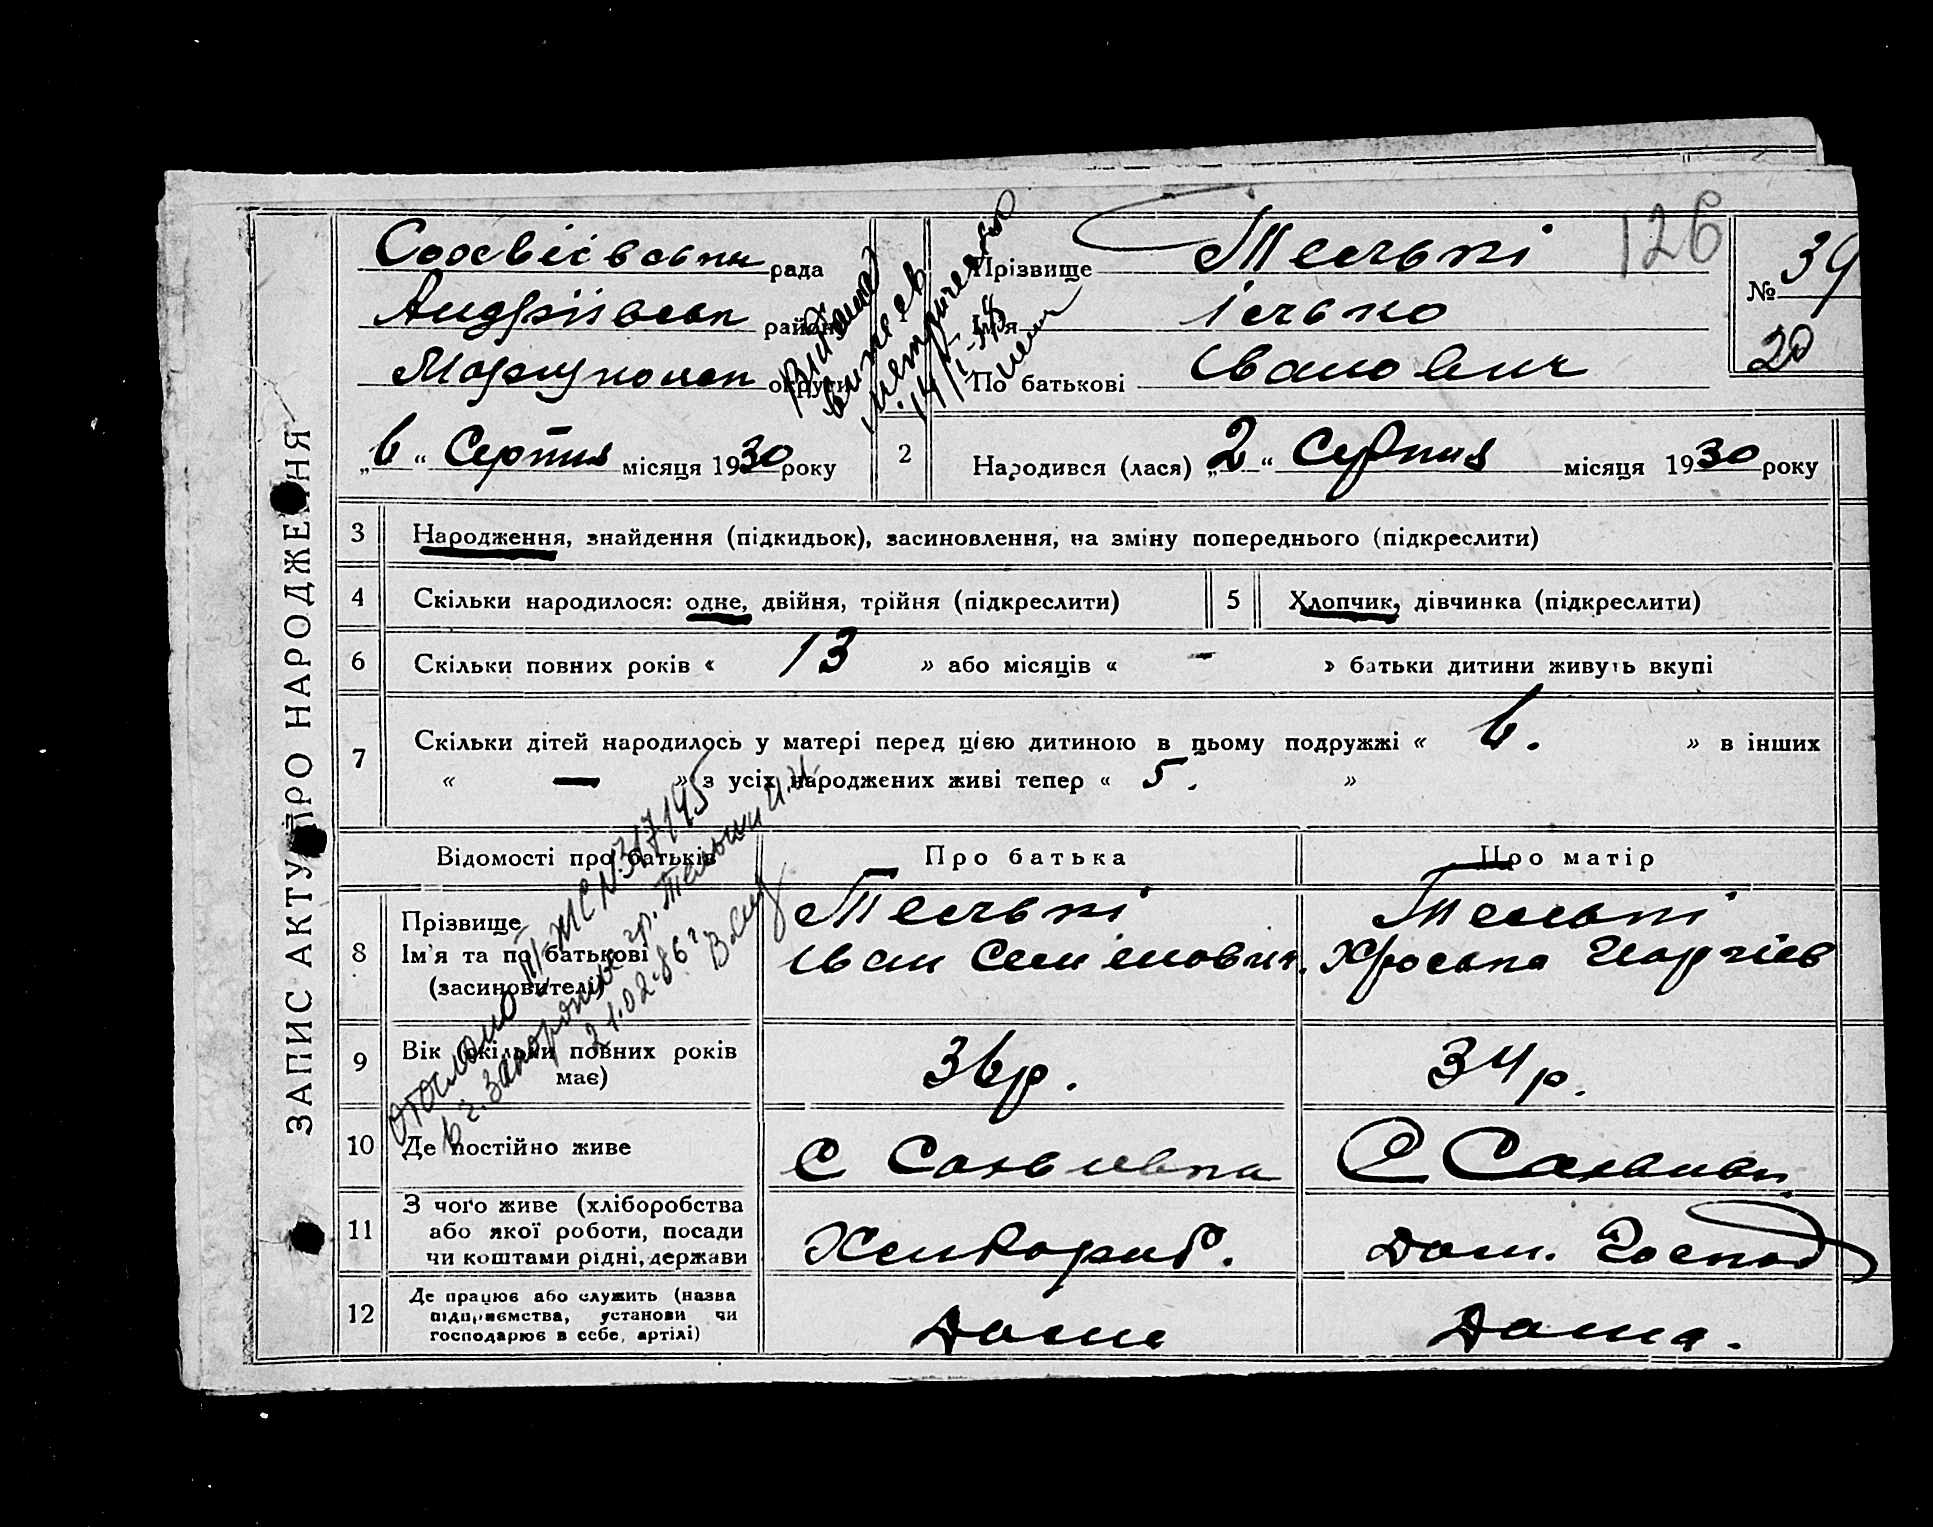 ЗАПИС АКТУ ПРО НАРОДЖЕННЯ
126
рада
Андріївськ району
округи
Прізвище Тельпі
Ім'я Ілько
По батькові Іванович
№ 39
20
„6“ Серпня місяця 1930 року
2 Народився (лася) „2“ Серпня місяця 1930 року
3 Народження, знайдення (підкидьок), засиновлення, на зміну попереднього (підкреслити)
4 Скільки народилося: одне, двійня, трійня (підкреслити)
5 Хлопчик, дівчинка (підкреслити)
6 Скільки повних років « 13 » або місяців « - » батьки дитини живуть вкупі
7 Скільки дітей народилось у матері перед цією дитиною в цьому подружжі « 6. » в інших
« — » з усіх народжених живі тепер « 5. »
Відомості про батьків Про батька Про матір
8 Прізвище
Ім'я та по батькові
(засиновителі)
Тельпі
Іван Семенович.
Тельпі
Георгієв
9 Вік (скільки повних років
має)
36 р.
34 р.
10 Де постійно живе
С
С
11 З чого живе (хліборобства
або якої роботи, посади
чи коштами рідні, держави
Хлібороб.
Дом. Господ
12 Де працює або служить (назва
підприємства, установи чи
господарює в себе, артілі)
Дома
Дома.
отослано II ЖС N 317145
в г. Запорожье гр. Тельпи И.И.
21.02.86 г.